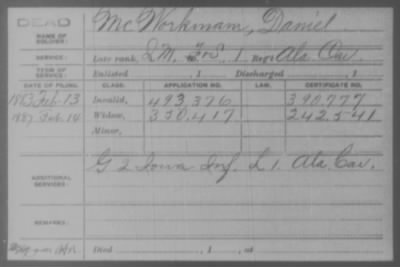 DEAD
NAME OF SOLDIER: McWorkmam, Daniel
SERVICE: Late rank, Q.M. 1 Reg't Ala. Cav.
TERM OF SERVICE: Enlisted , 1 Discharged , 1
DATE OF FILING. CLASS. APPLICATION NO. LAW. CERTIFICATE NO.
Feb. 13 Invalid, 493,376 390,777
1887 Feb. 14 Widow, 350,417 242,541
Minor,
ADDITIONAL SERVICES: G 2 Iowa Inf. L 1. Ala. Cav.
REMARKS:
Died , 1 , at